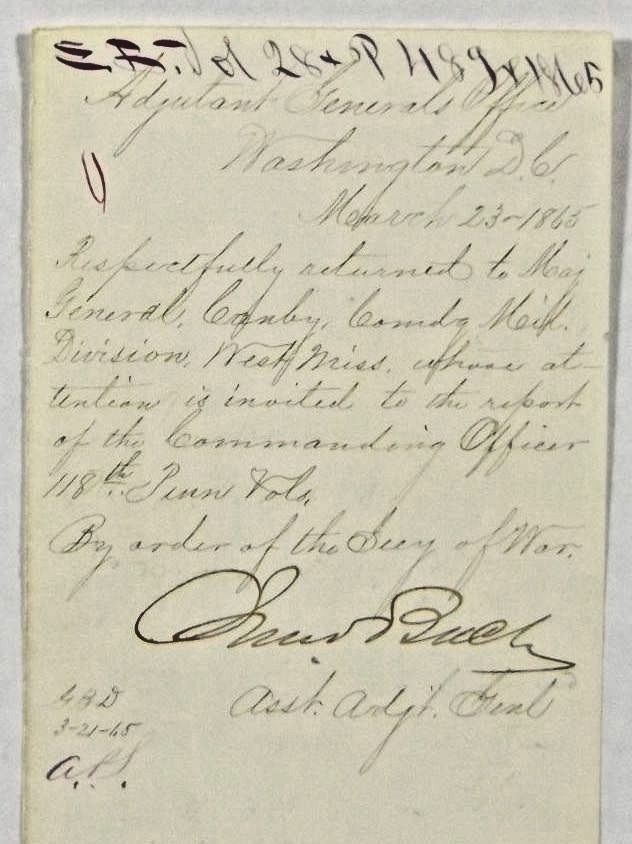 E.B. Vol 28 & P 489 & 1865
Adjutant Generals Office
Washington D.C.
March 23-1865
Respectfully returned to Maj
General, Canby, Comdg Mil.
Division, West Miss. whose at-
tention is invited to the report
of the Commanding Officer
118th Penn Vols.
By order of the Secy of War.
Asst. Adjt. Genl
3-21-65